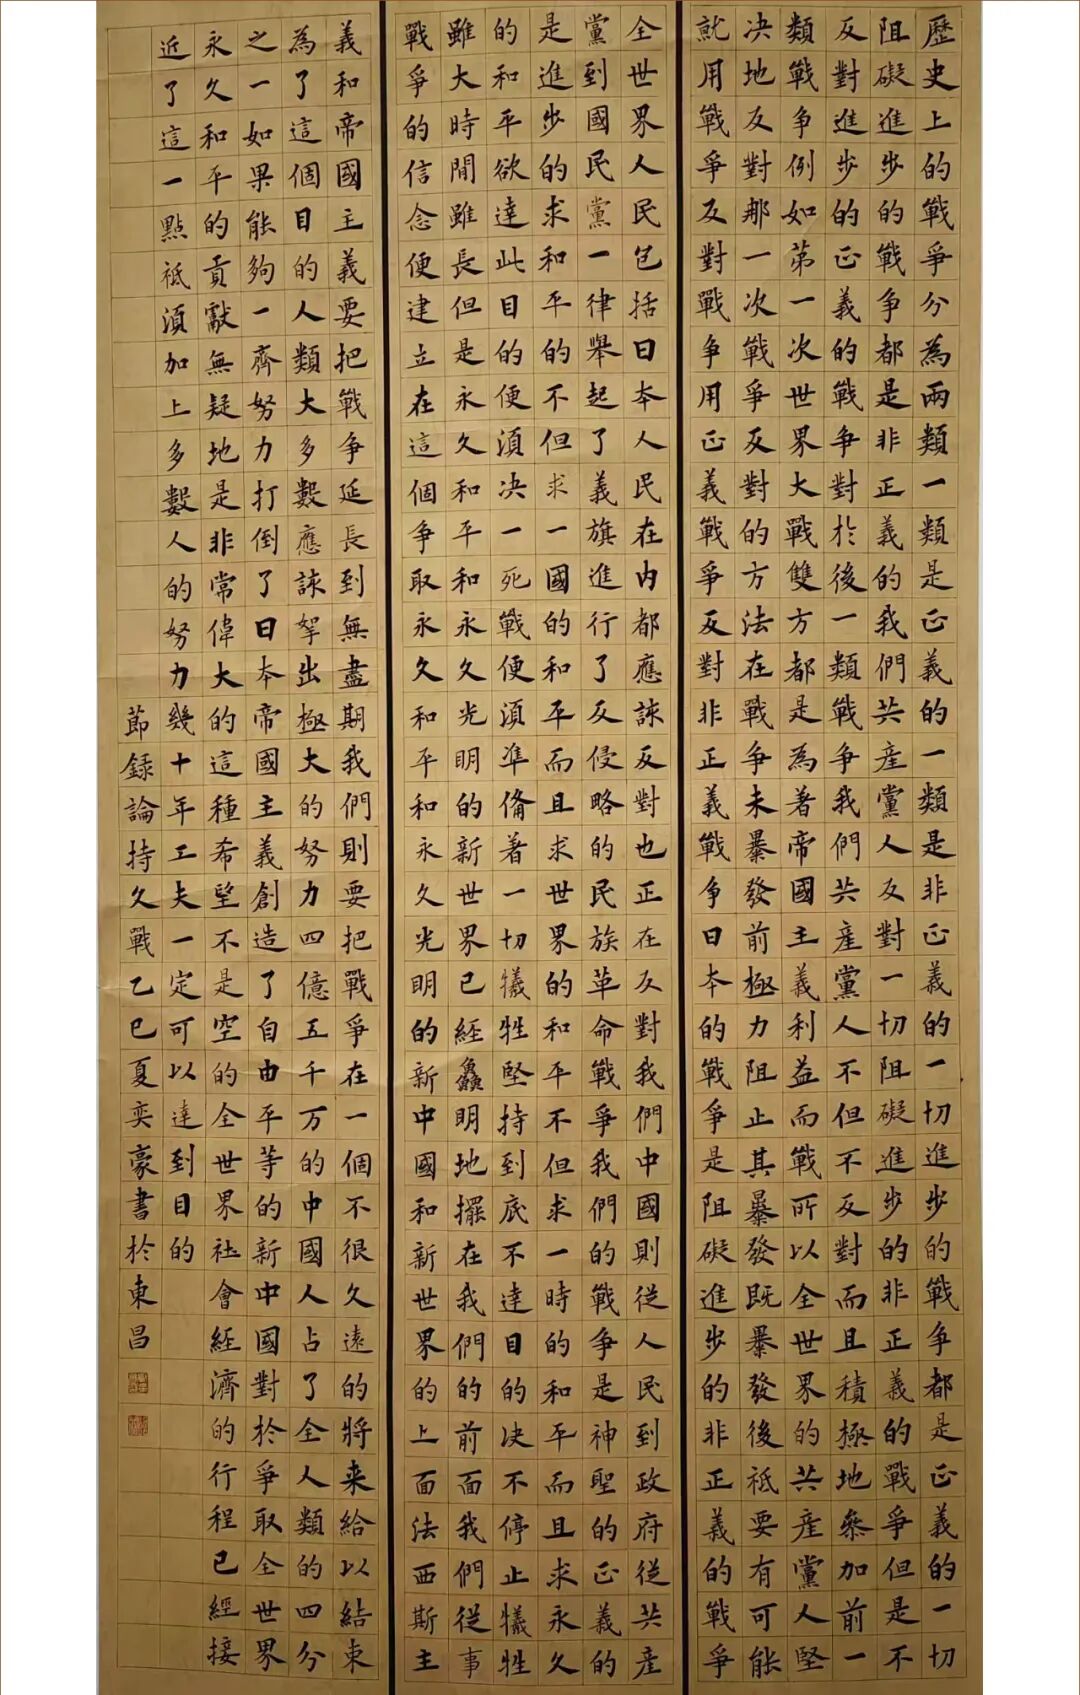 歷史上的戰爭分為兩類一類是正義的一類是非正義的一切進步的戰争都是正義的一切
阻礙進步的戰争都是非正義的我們共產黨人反對一切阻礙進步的非正義的戰爭但是不
反對進步的正義的戰争對於後一類戰争我們共產黨人不但不反對而且積極地參加前一
類戰争例如第一次世界大戰雙方都是為著帝國主義利益而戰所以全世界的共產黨人堅
决地反對那一次戰爭反對的方法在戰争未暴發前極力阻止其暴發既暴發後祗要有可能
就用戰爭反對戰争用正義戰爭反對非正義戰争日本的戰爭是阻礙進步的非正義的戰爭
全世界人民包括日本人民在内都應該反對也正在反對我們中國則從人民到政府從共產
黨到國民黨一律舉起了義旗進行了反侵略的民族革命戰爭我們的戰争是神聖的正義的
是進步的求和平的不但求一國的和平而且求世界的和平不但求一時的和平而且求永久
的和平欲達此目的便須决一死戰便須準備著一切犧牲堅持到底不達目的决不停止犧牲
雖大時間雖長但是永久和平和永久光明的新世界已經鱻明地擺在我們的前面我們從事
戰爭的信念便建立在這個争取永久和平和永久光明的新中國和新世界的上面法西斯主
義和帝國主義要把戰争延長到無盡期我們則要把戰爭在一個不很久遠的將来給以結束
為了這個目的人類大多數應該拏出極大的努力四億五千万的中國人占了全人類的四分
之一如果能夠一齊努力打倒了日本帝國主義創造了自由平等的新中國對於爭取全世界
永久和平的貢獻無疑地是非常偉大的這種希望不是空的全世界社會經濟的行程已經接
近了這一點祗須加上多數人的努力幾十年工夫一定可以達到目的
節録論持久戰乙巳夏奕豪書於東昌